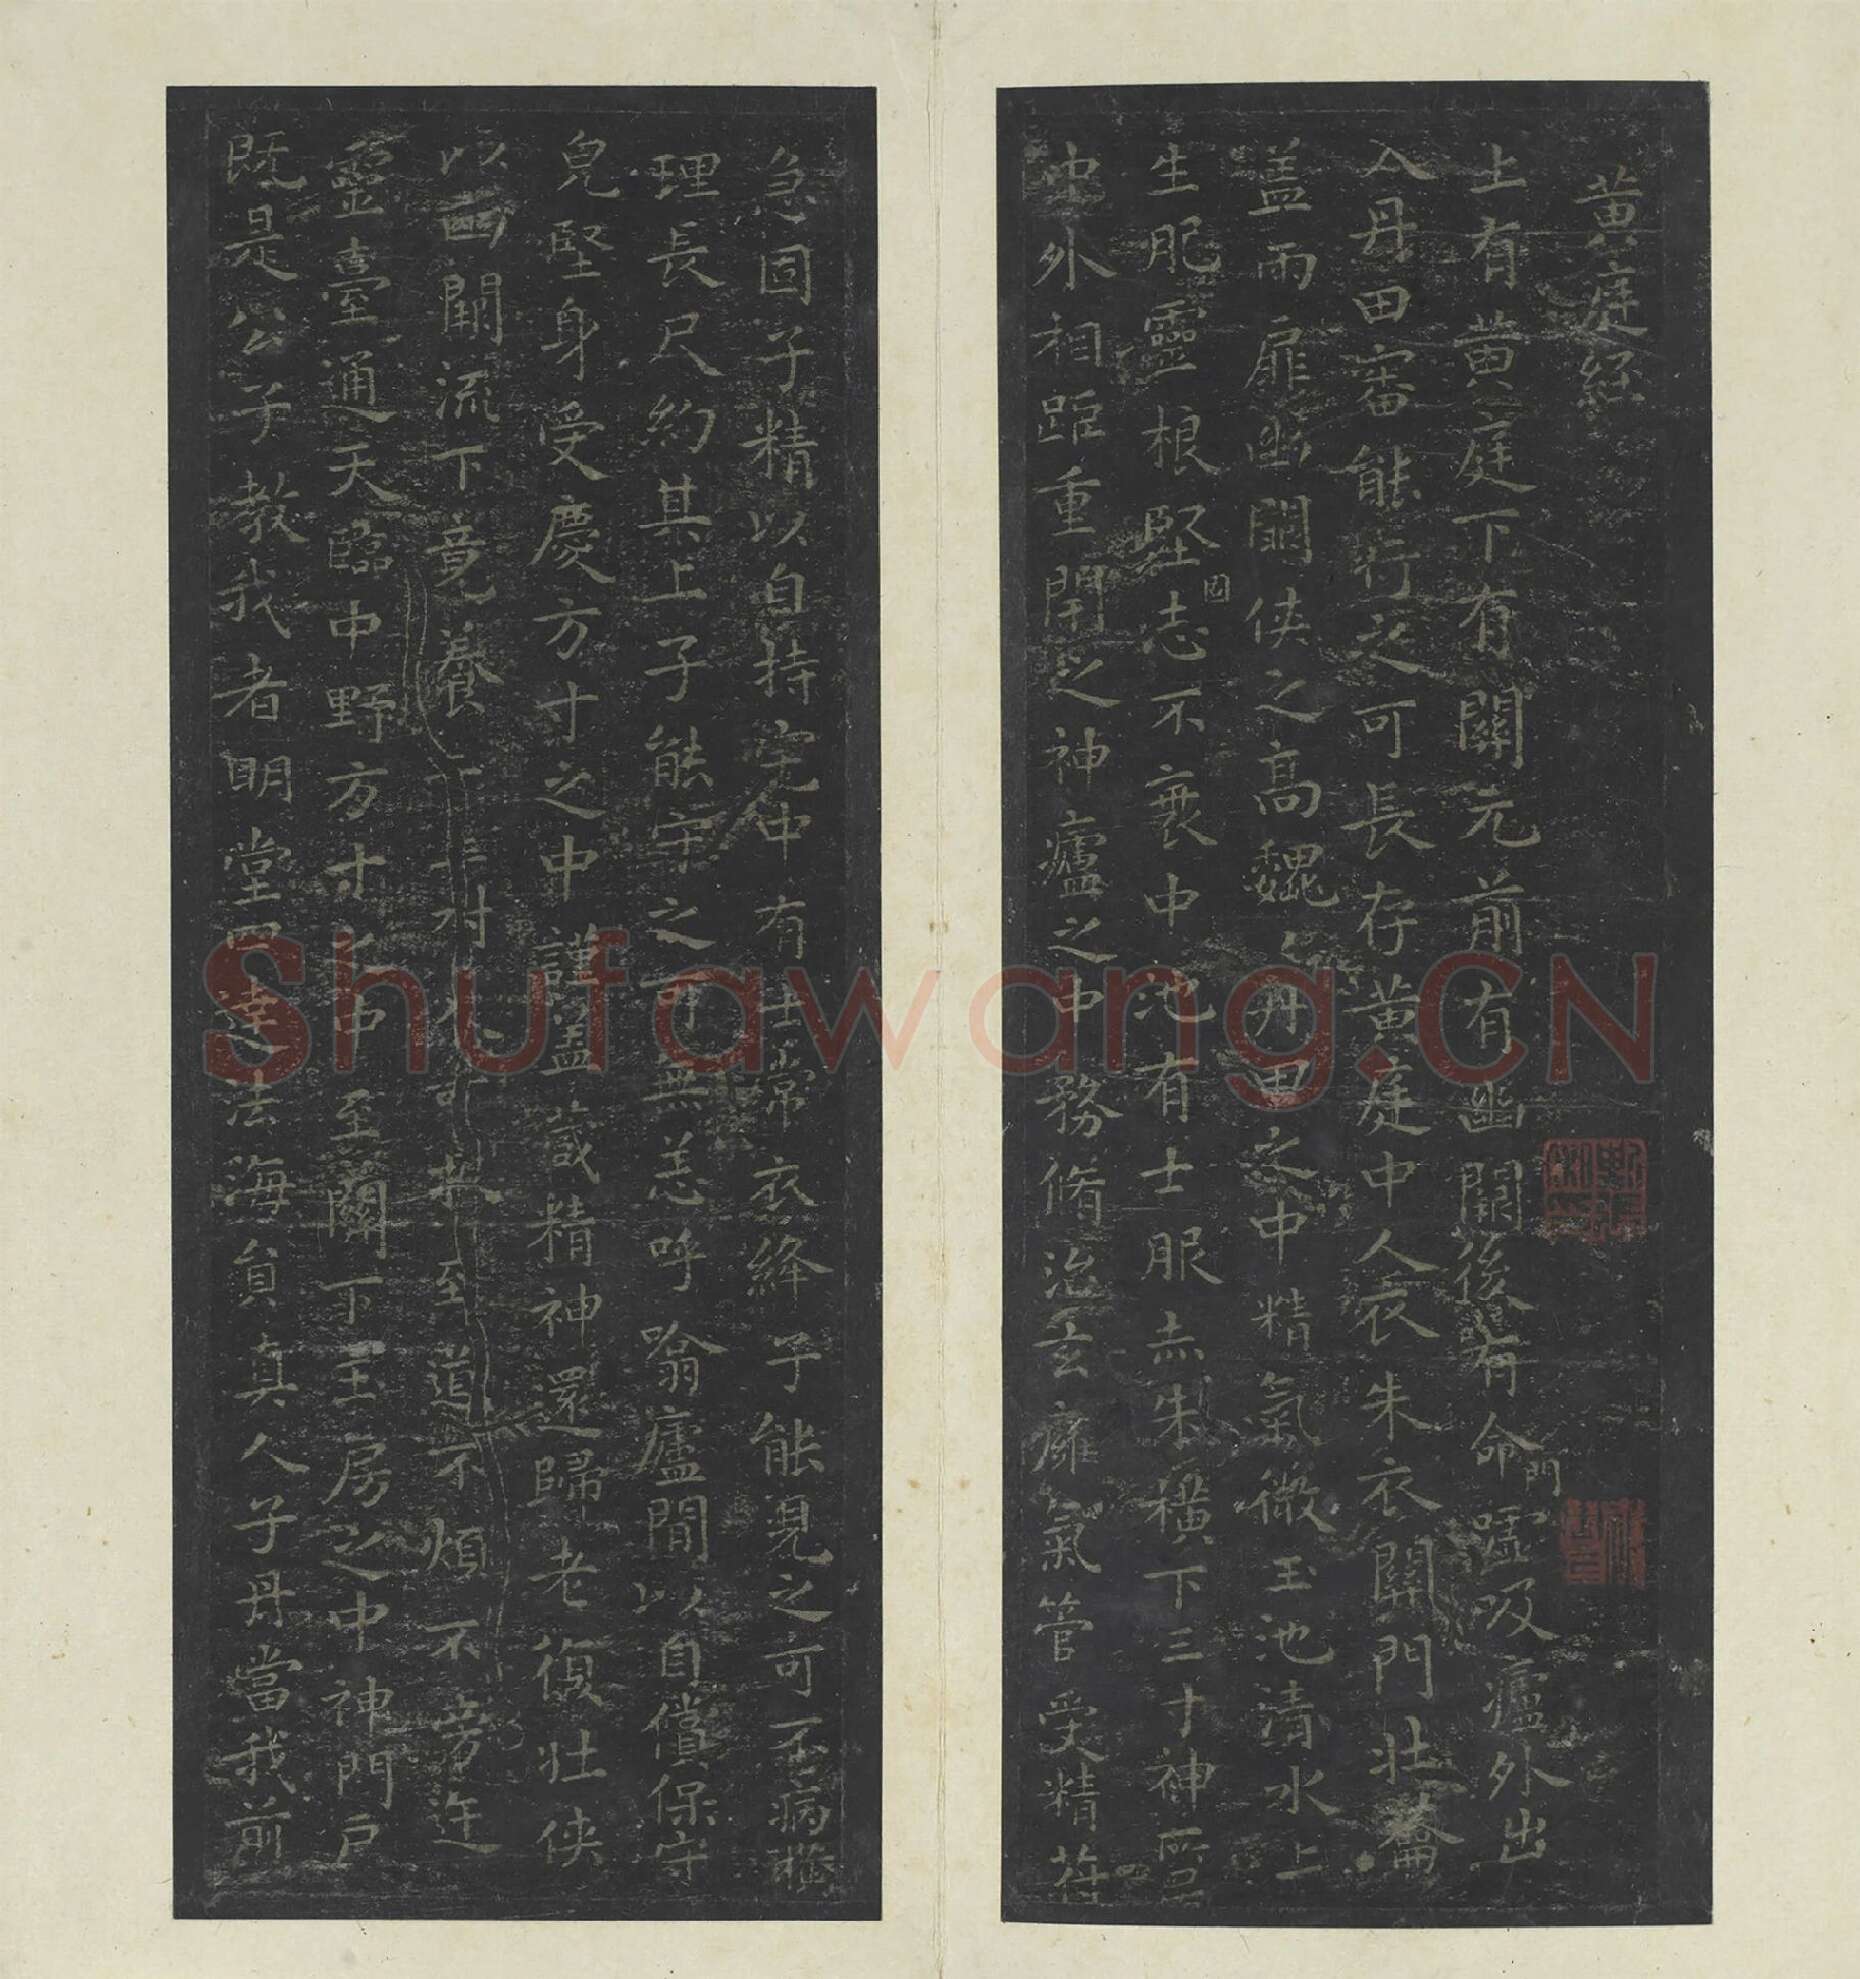 黄庭经
上有黄庭下有關元前有幽關後有命門嘘吸廬外出
入丹田審能行之可長存黄庭中人衣朱衣關門壮蘥
盖兩扉幽關侠之高魏丹田之中精氣微玉池清水上
生肥靈根堅固志不衰中池有士服赤朱横下三寸神所居
中外相距重閇之神廬之中務脩治玄㢕氣管受精符
急固子精以自持宅中有士常衣絳子能見之可不病横
理長尺約其上子能守之可無恙呼噏廬間以自償保守
皃堅身受慶方寸之中謹盖藏精神還歸老復壮侠
以幽闕流下竟養子玉樹不可杖至道不煩不旁迕
靈臺通天臨中野方寸之中至關下玉房之中神門户
既是公子教我者明堂四達法海員真人子丹當我前
Shufawang.CN